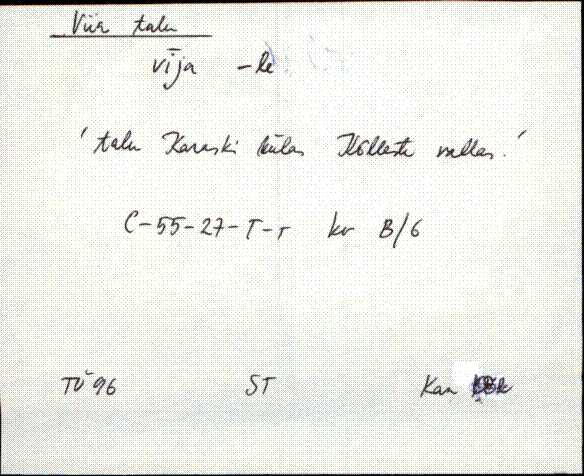 Viia talu
vīja -le
' talu Karaski külas Kõlleste vallas.'
C-55-27-T-т kv B/6
TÜ 96 ST Kan